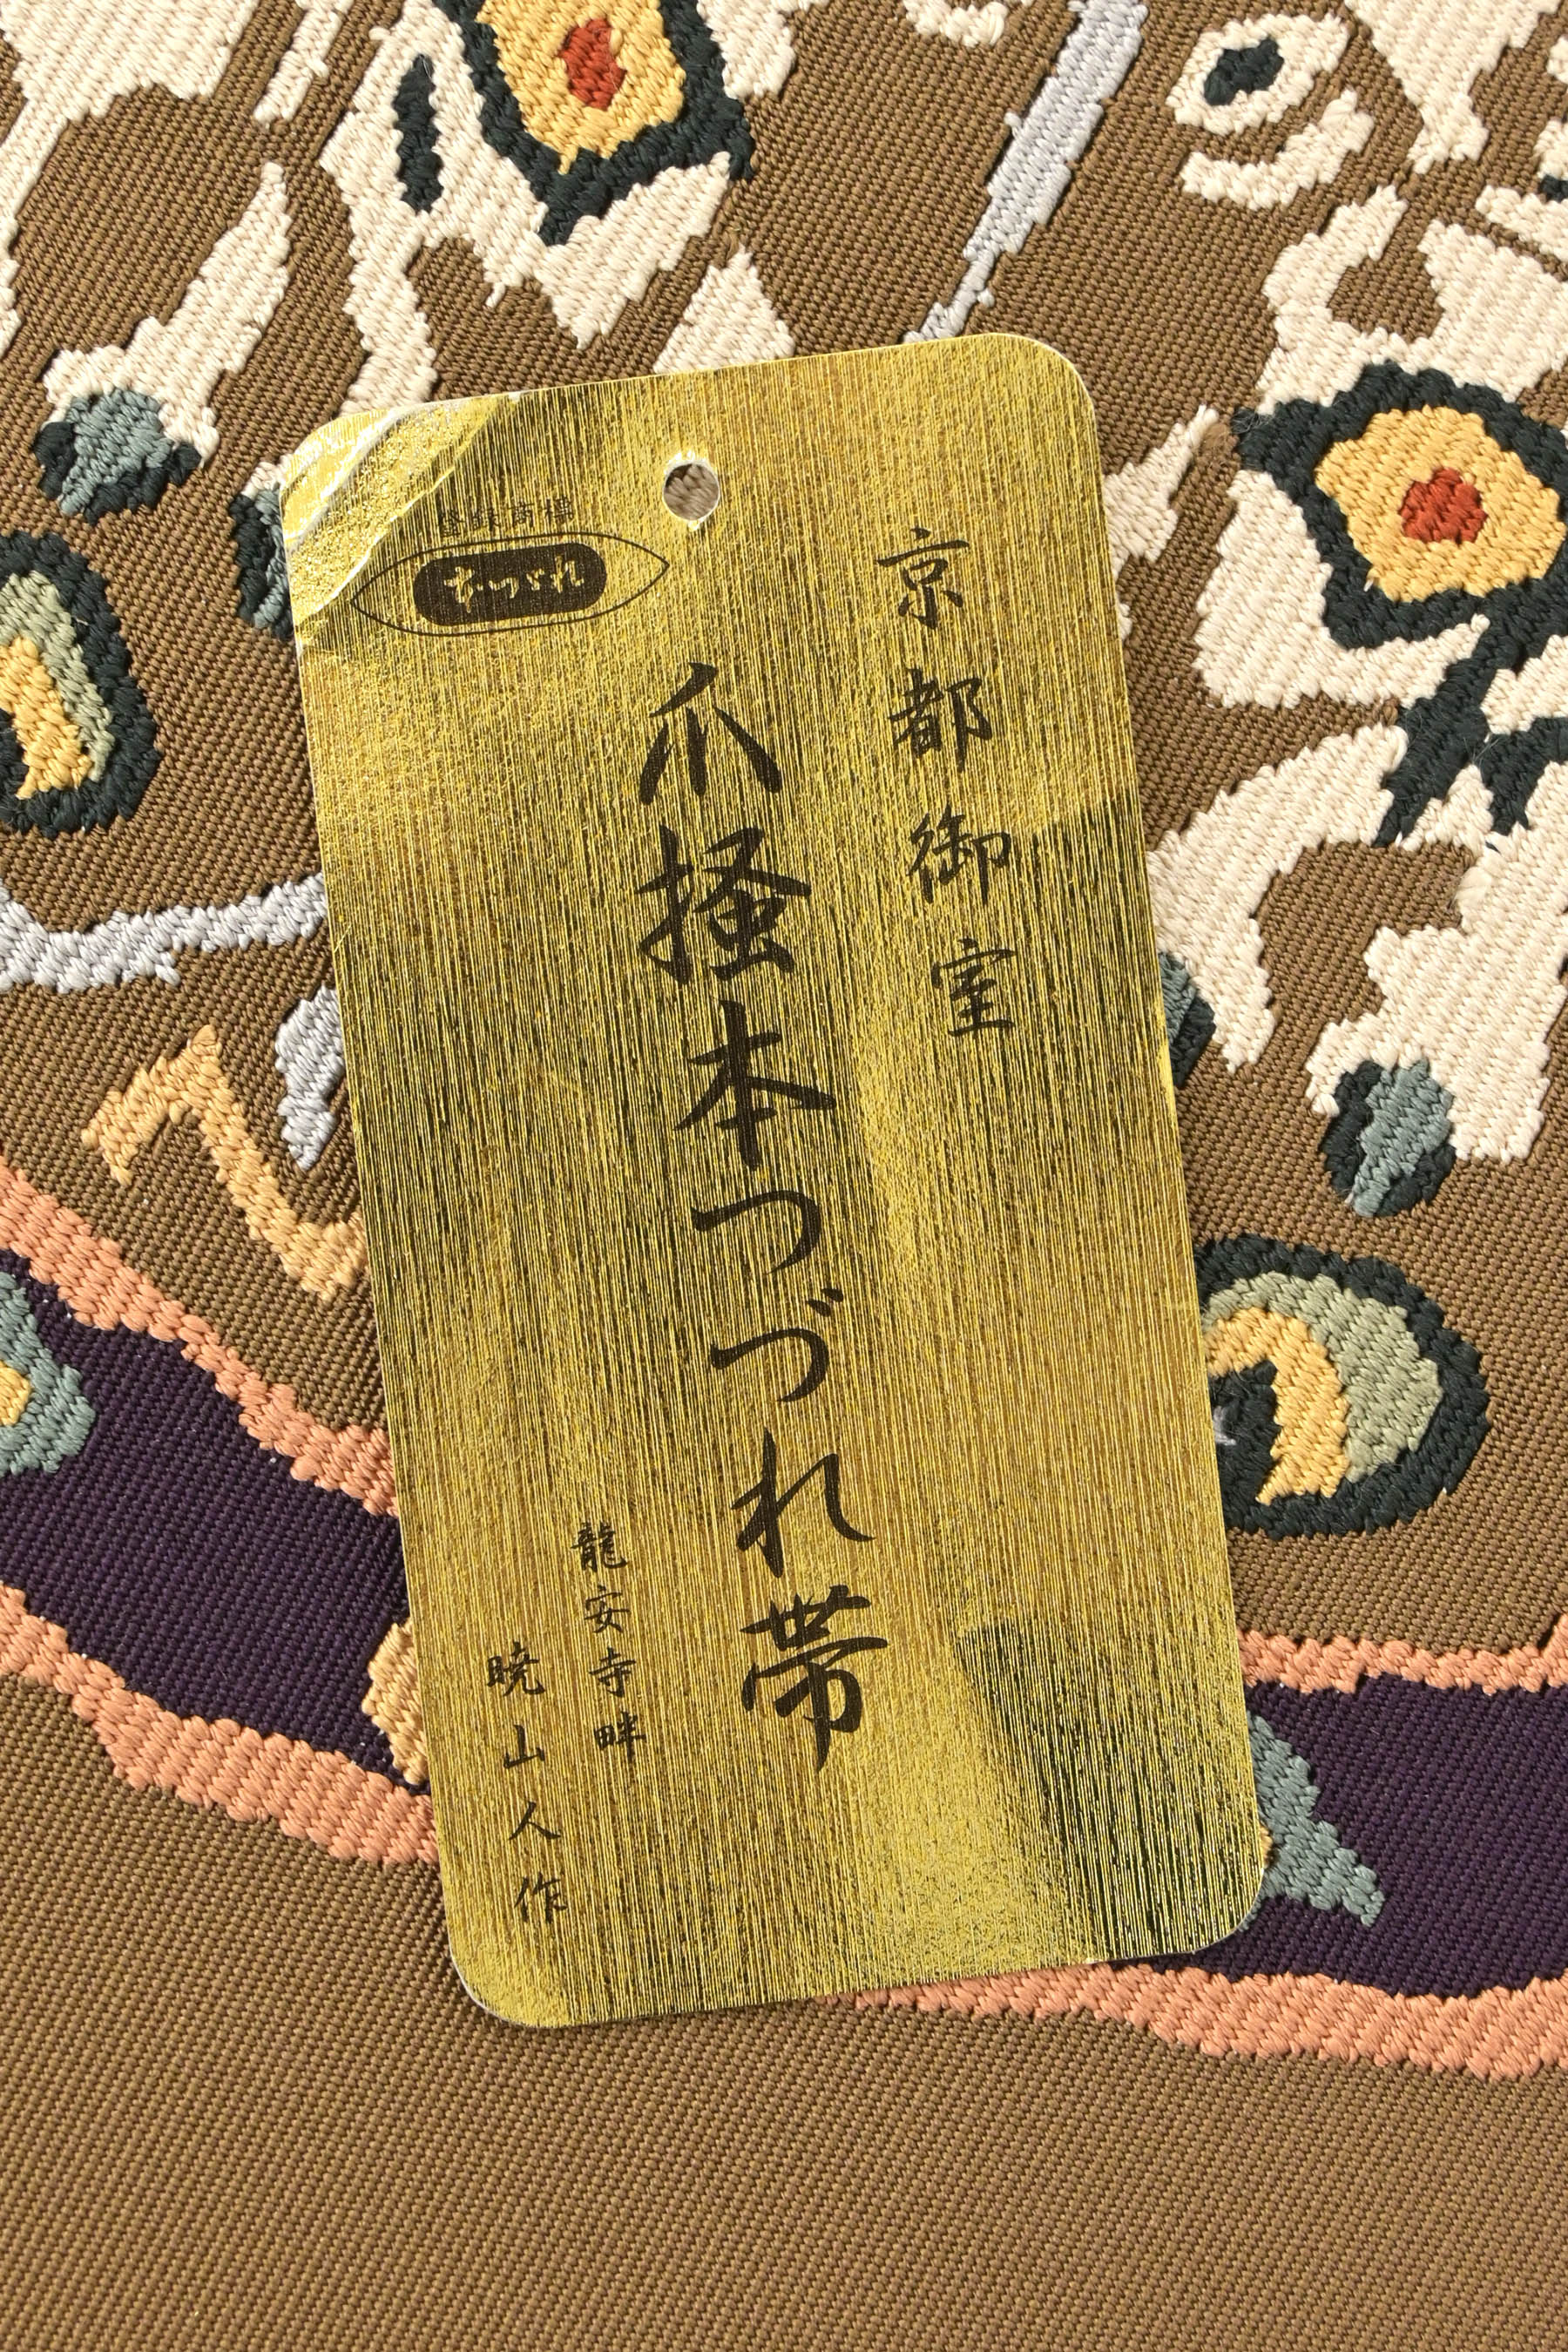 京都御室
爪掻本つづれ帯
登録商標
龍安寺畔
暁山人作